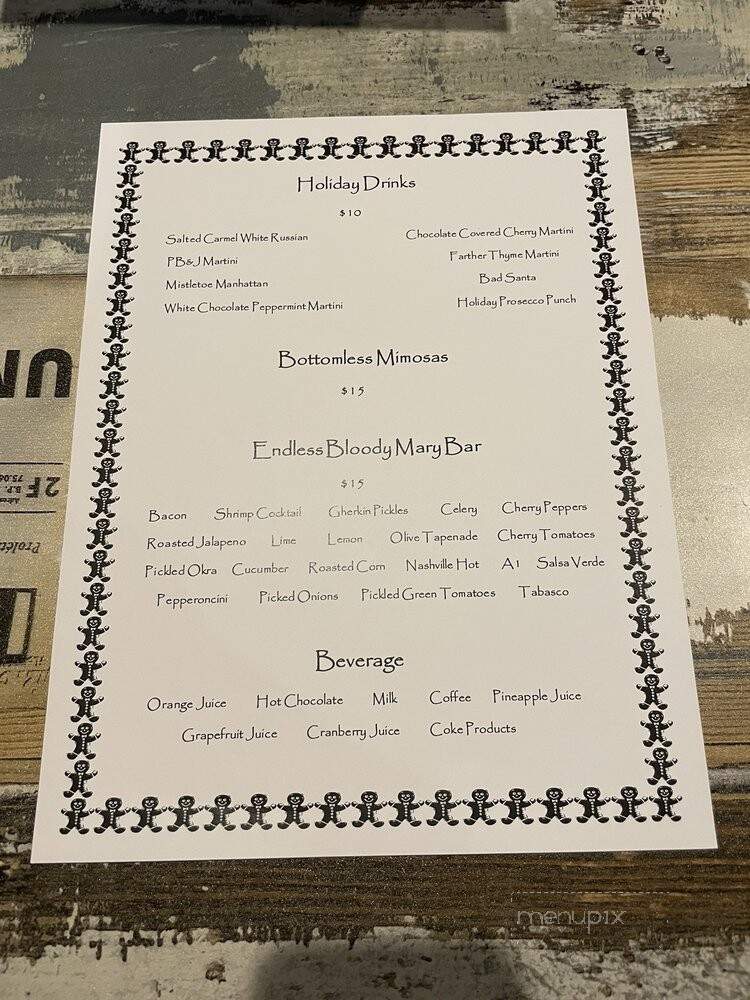 Holiday Drinks
$10
Salted Carmel White Russian Chocolate Covered Cherry Martini
PB&J Martini Farther Thyme Martini
Mistletoe Manhattan Bad Santa
White Chocolate Peppermint Martini Holiday Prosecco Punch
Bottomless Mimosas
$15
Endless Bloody Mary Bar
$15
Bacon Shrimp Cocktail Gherkin Pickles Celery Cherry Peppers
Roasted Jalapeno Lime Lemon Olive Tapenade Cherry Tomatoes
Pickled Okra Cucumber Roasted Corn Nashville Hot A1 Salsa Verde
Pepperoncini Picked Onions Pickled Green Tomatoes Tabasco
Beverage
Orange Juice Hot Chocolate Milk Coffee Pineapple Juice
Grapefruit Juice Cranberry Juice Coke Products
UN
2F
B.P.
menupix